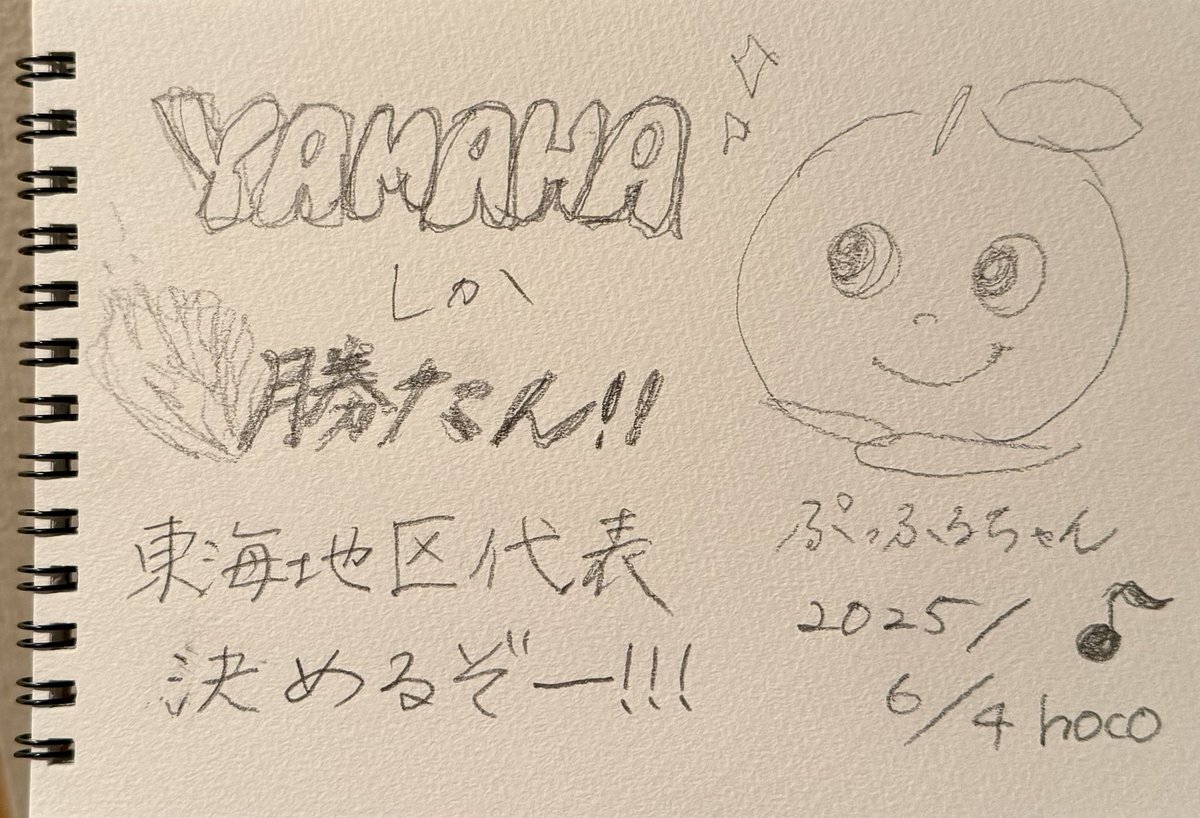 YAMAHA
しか
勝たん!!
東海地区代表
決めるぞー!!!
ぷっふるちゃん
2025/
6/4 hoco